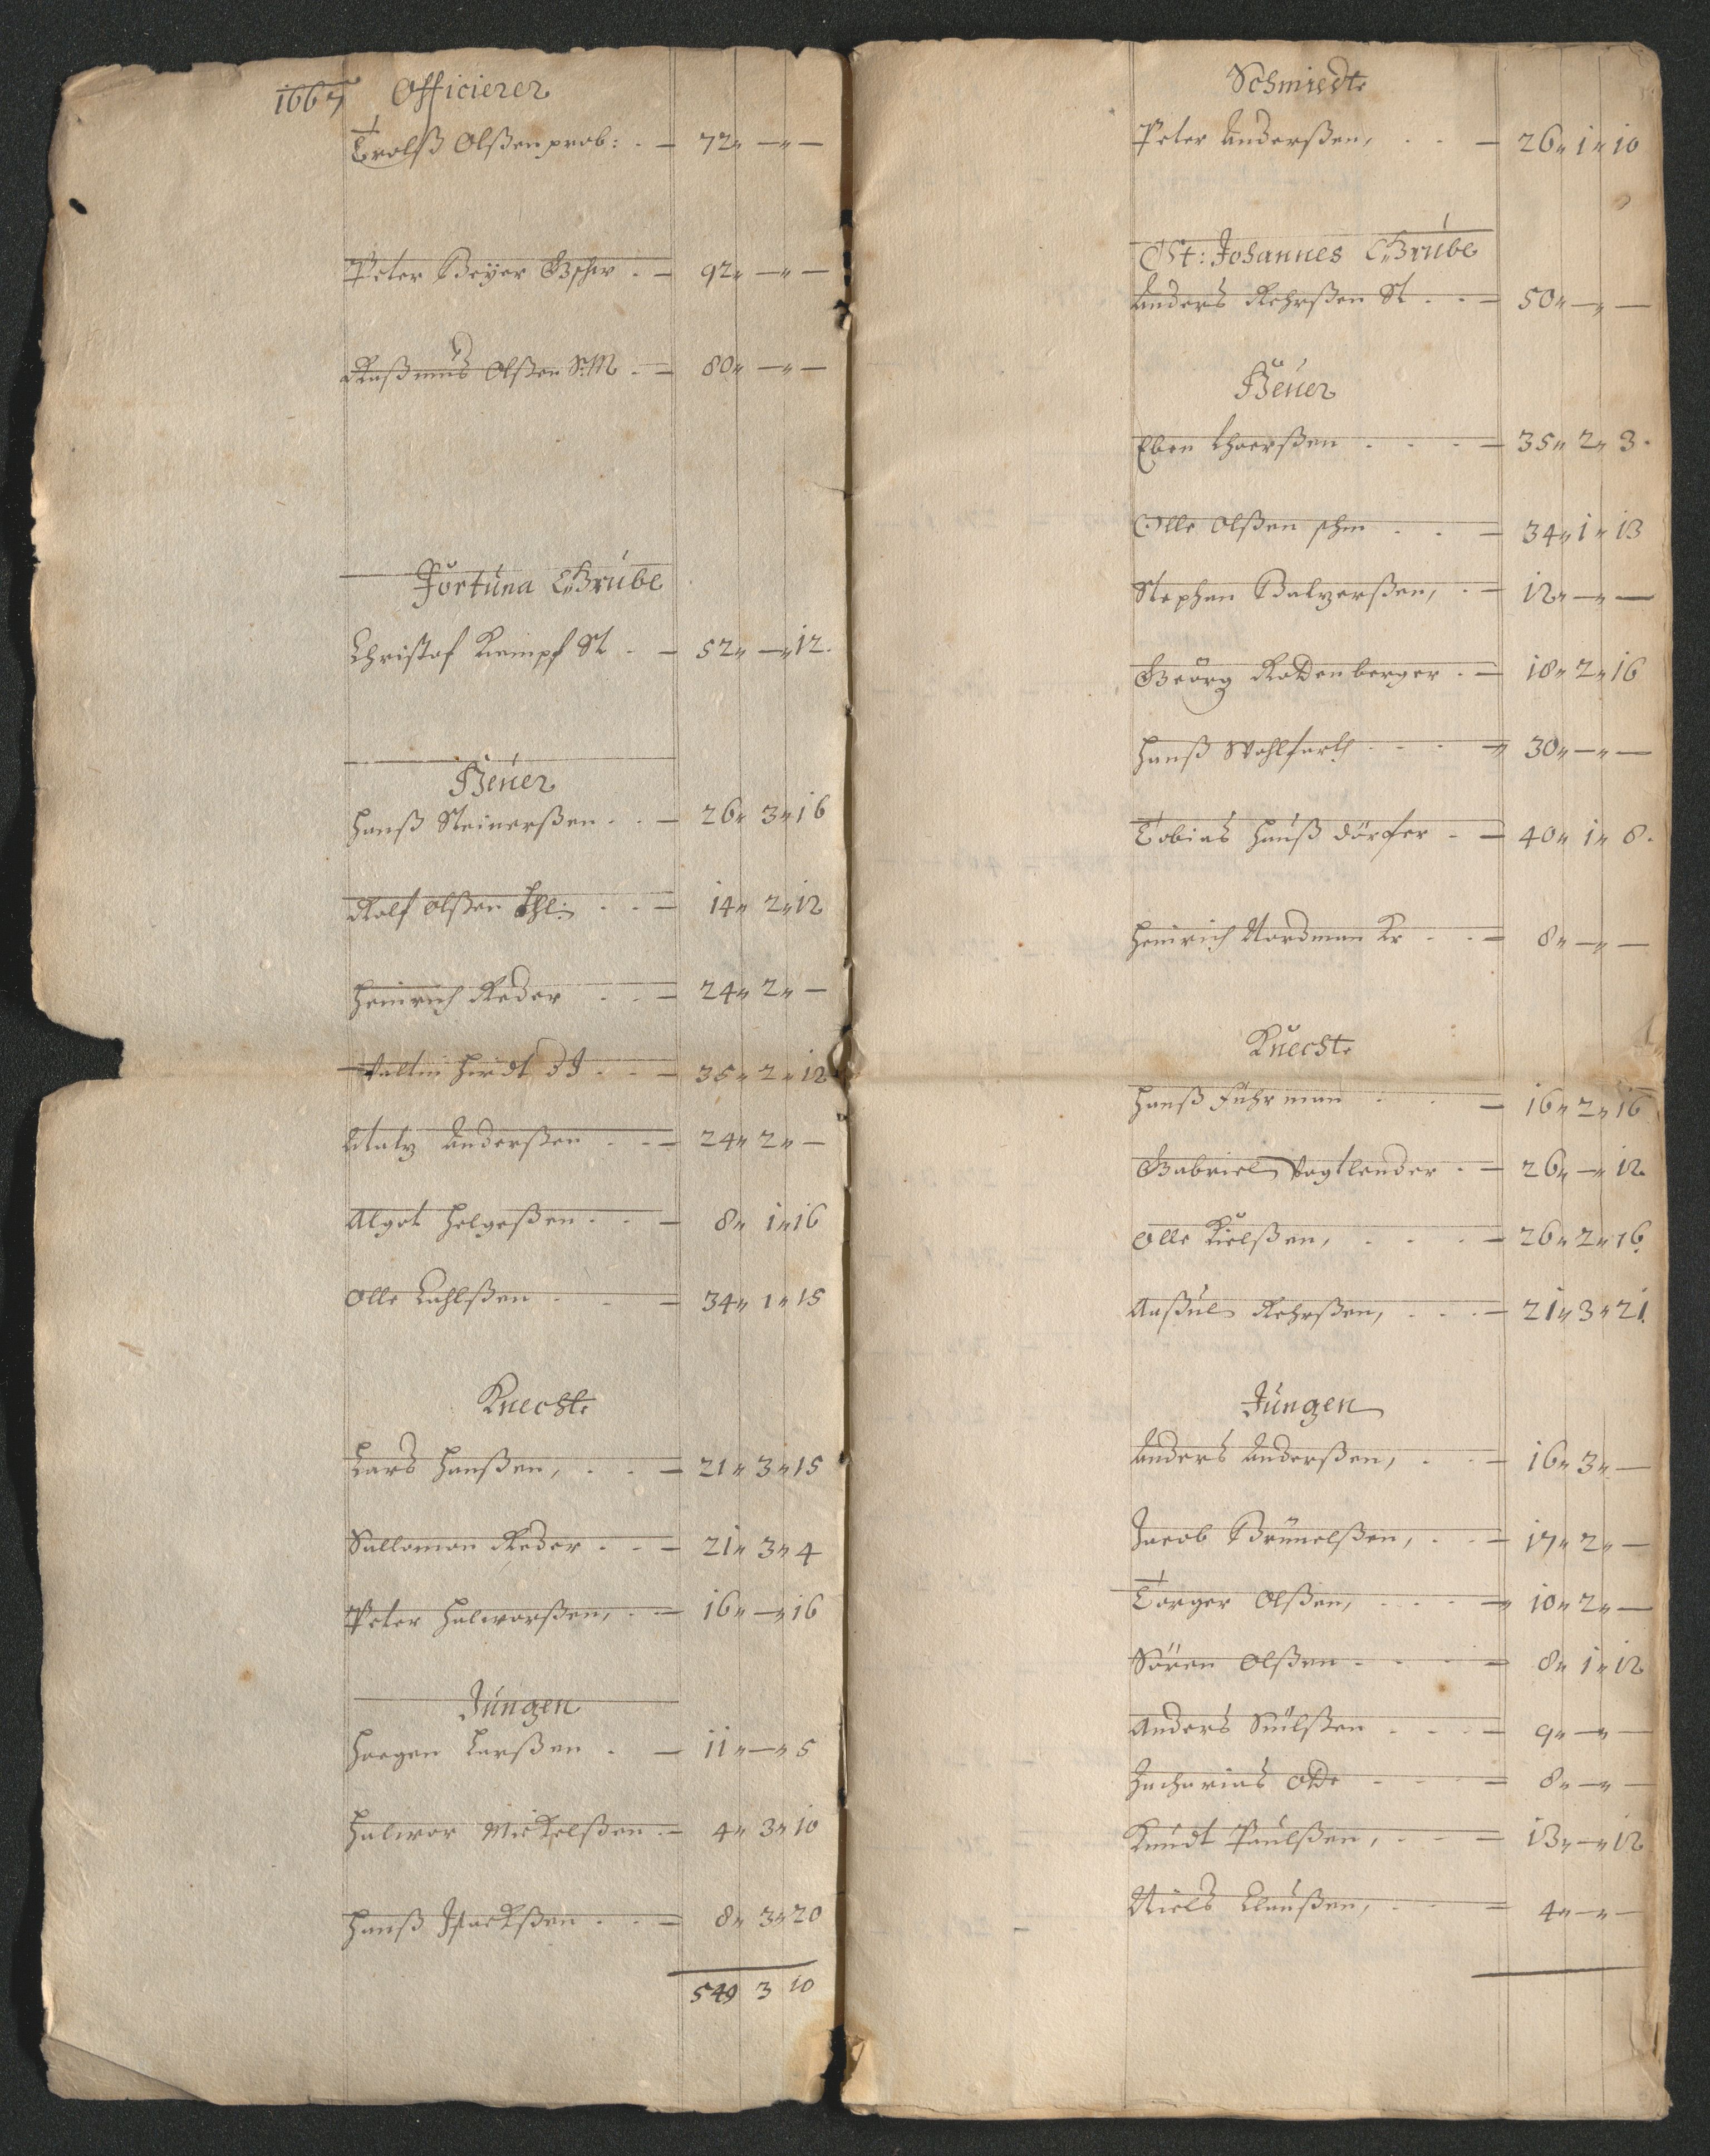 1667 Officierer
Trolß Olßen prob: . — 72 „ — „ —
Peter Beÿer Gschw . — 92 „ — „ —
Raßmus Olßen StM . — 80 „ — „ —
Fortuna Grube
Christof Kempf St . — 52 „ — „ 12.
Heuer
Hanß Steinerßen . . — 26 „ 3 „ 16
Rolf Olßen . . — 14 „ 2 „ 12
Heinrich Reder . . — 24 „ 2 „ —
Valtin Hirdt . . — 35 „ 2 „ 12
Matz Anderßen . . — 24 „ 2 „ —
Algot Helgeßen . . — 8 „ 1 „ 16
Olle Lahlßen . . — 34 „ 1 „ 15
Knechte
Lars Hanßen, . . — 21 „ 3 „ 15
Sallomon Reder . . — 21 „ 3 „ 4
Peter Halworßen, . — 16 „ — „ 16
Jungen
Haagen Larßen . — 11 „ — „ 5
Halwor Mickelßen . — 4 „ 3 „ 10
Hanß Isackßen . . — 8 „ 3 „ 20
549 3 10
Schmiedte
Peter Anderßen, . . — 26 „ 1 „ 10
St: Johannes Grube
Anders Rehrßen St . . — 50 „ — „ —
Heuer
Eben . . . — 35 „ 2 „ 3.
Olle Olßen schm . . — 34 „ 1 „ 13
Stephan Balzerßen, . — 12 „ — „ —
Geörg Rottenberger . — 18 „ 2 „ 16
Hanß Wohlfarth . . . — 30 „ — „ —
Tobias Hauß dörfer . — 40 „ 1 „ 8.
Heinrich Nordman Kr . . — 8 „ — „ —
Knechte
Hanß Fuhrman . . — 16 „ 2 „ 16
Gabriel Vogtlender . — 26 „ — „ 12
Olle Kielßen, . . . — 26 „ 2 „ 16.
Aaßul Rehrßen, . . . — 21 „ 3 „ 21.
Jungen
Anders Anderßen, . . — 16 „ 3 „ —
Jacob Brünelßen, . . — 17 „ 2 „ —
Torger Olßen, . . . . — 10 „ 2 „ —
Sören Olßen . . . — 8 „ 1 „ 12
Anders . . . — 9 „ — „ —
Zacharias Otte . . . — 8 „ — „ —
Knudt Paulßen, . . — 13 „ — „ 12
Niels Claußen, . . — 4 „ — „ —